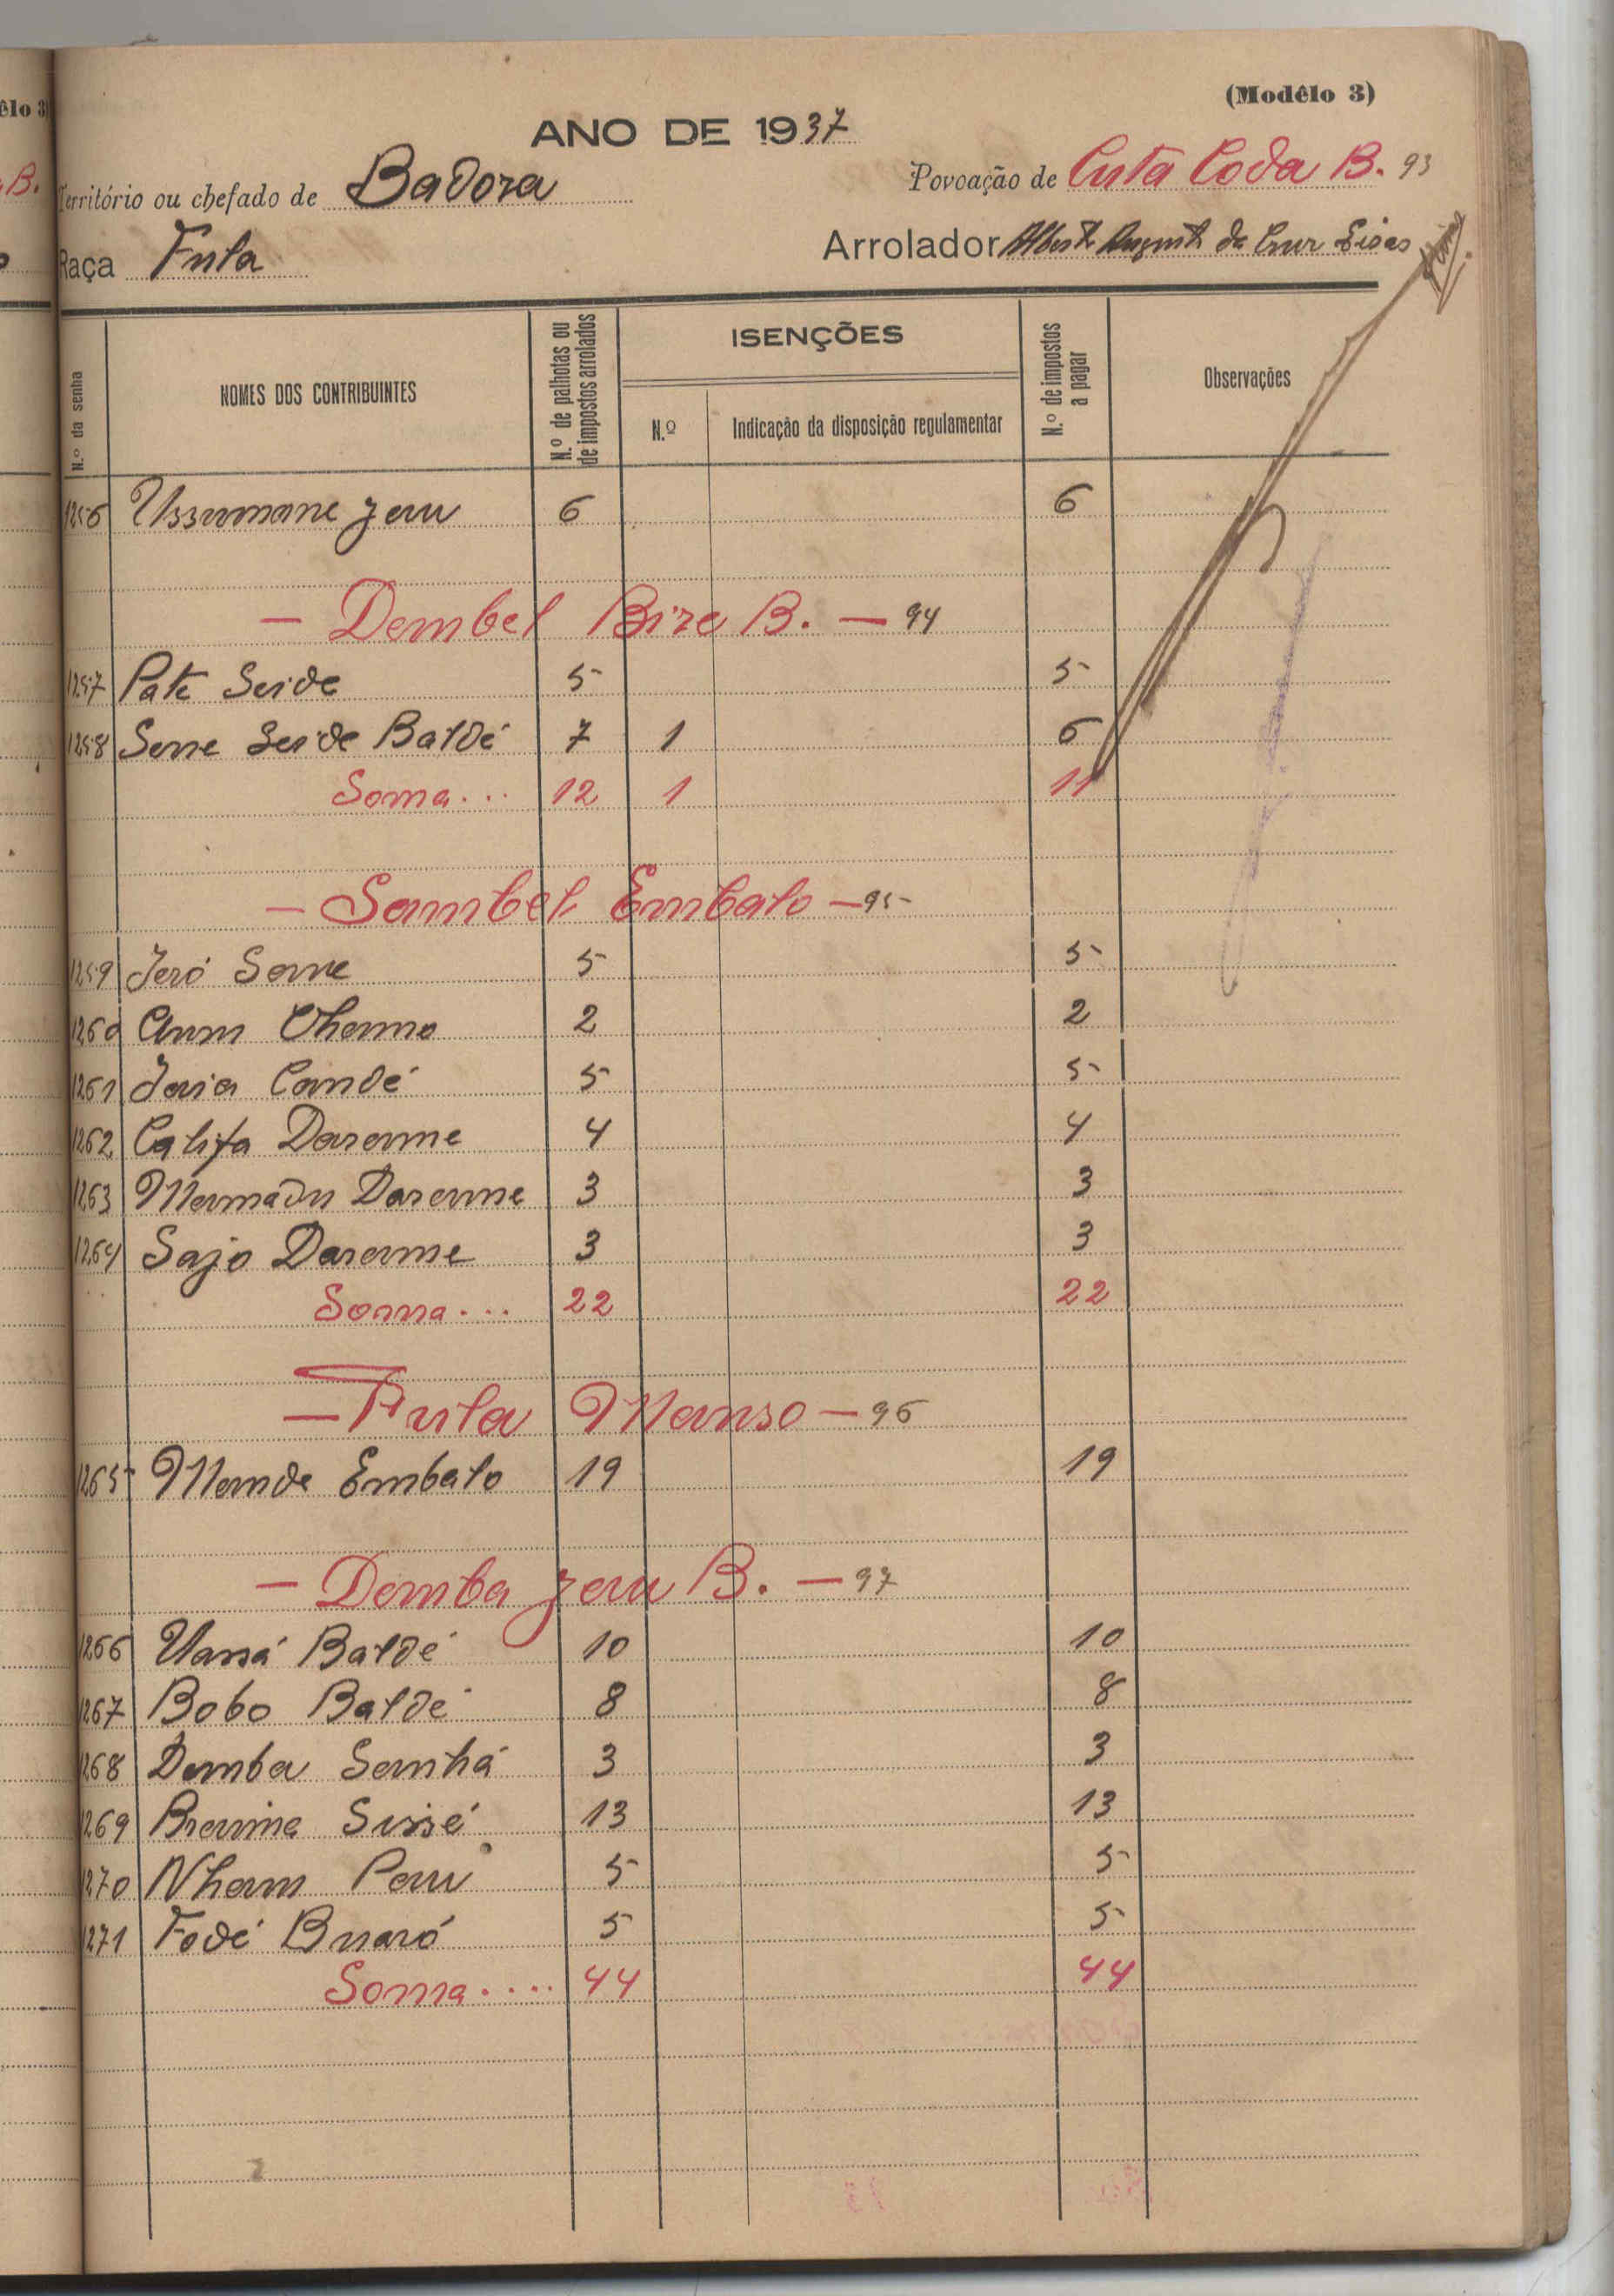 (Modêlo 3)
ANO DE 1937
Território ou chefado de Badora
Povoação de Cuta Coda B. 93
Raça Fula
Arrolador Alberto Augusto da Cruz
N.º da senha
NOMES DOS CONTRIBUINTES
N.º de palhotas ou de impostos arrolados
ISENÇÕES
N.º
Indicação da disposição regulamentar
N.º de impostos a pagar
Observações
1256 Ussumane Jau 6 6
— Dembel Bire B. — 94
1257 Pate Seide 5 5
1258 Sene Seide Baldé 7 1 6
Soma... 12 1 11
— Sambel Embalo — 95
1259 Jeró Sane 5 5
1260 2 2
1261 Jaia Candé 5 5
1262 Califa Darame 4 4
1263 Mamadu Darame 3 3
1264 Sajo Darame 3 3
Soma... 22 22
— Fula Manso — 96
1265 Manda Embalo 19 19
— Demba Jau B. — 97
1266 Baldé 10 10
1267 Bobo Baldé 8 8
1268 Demba Sanhá 3 3
1269 Braima Sissé 13 13
1270 Nham Pau 5 5
1271 Fodé Buaró 5 5
Soma.... 44 44